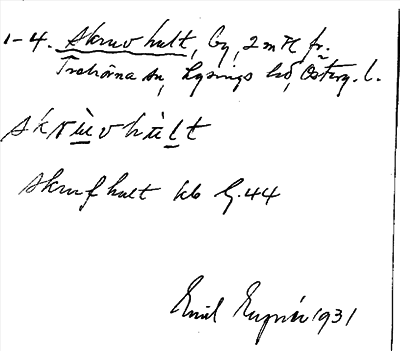 1-4. Skruvhult, by, 2 m fr.
Trehörna sn, Lysings hd, Österg. l.
skrùvhùlt
Skrufhult kb G. 44
Emil 1931